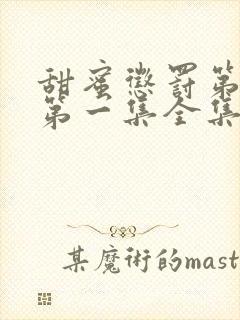 甜蜜懲罰第
第一集全集
某魔術的mast